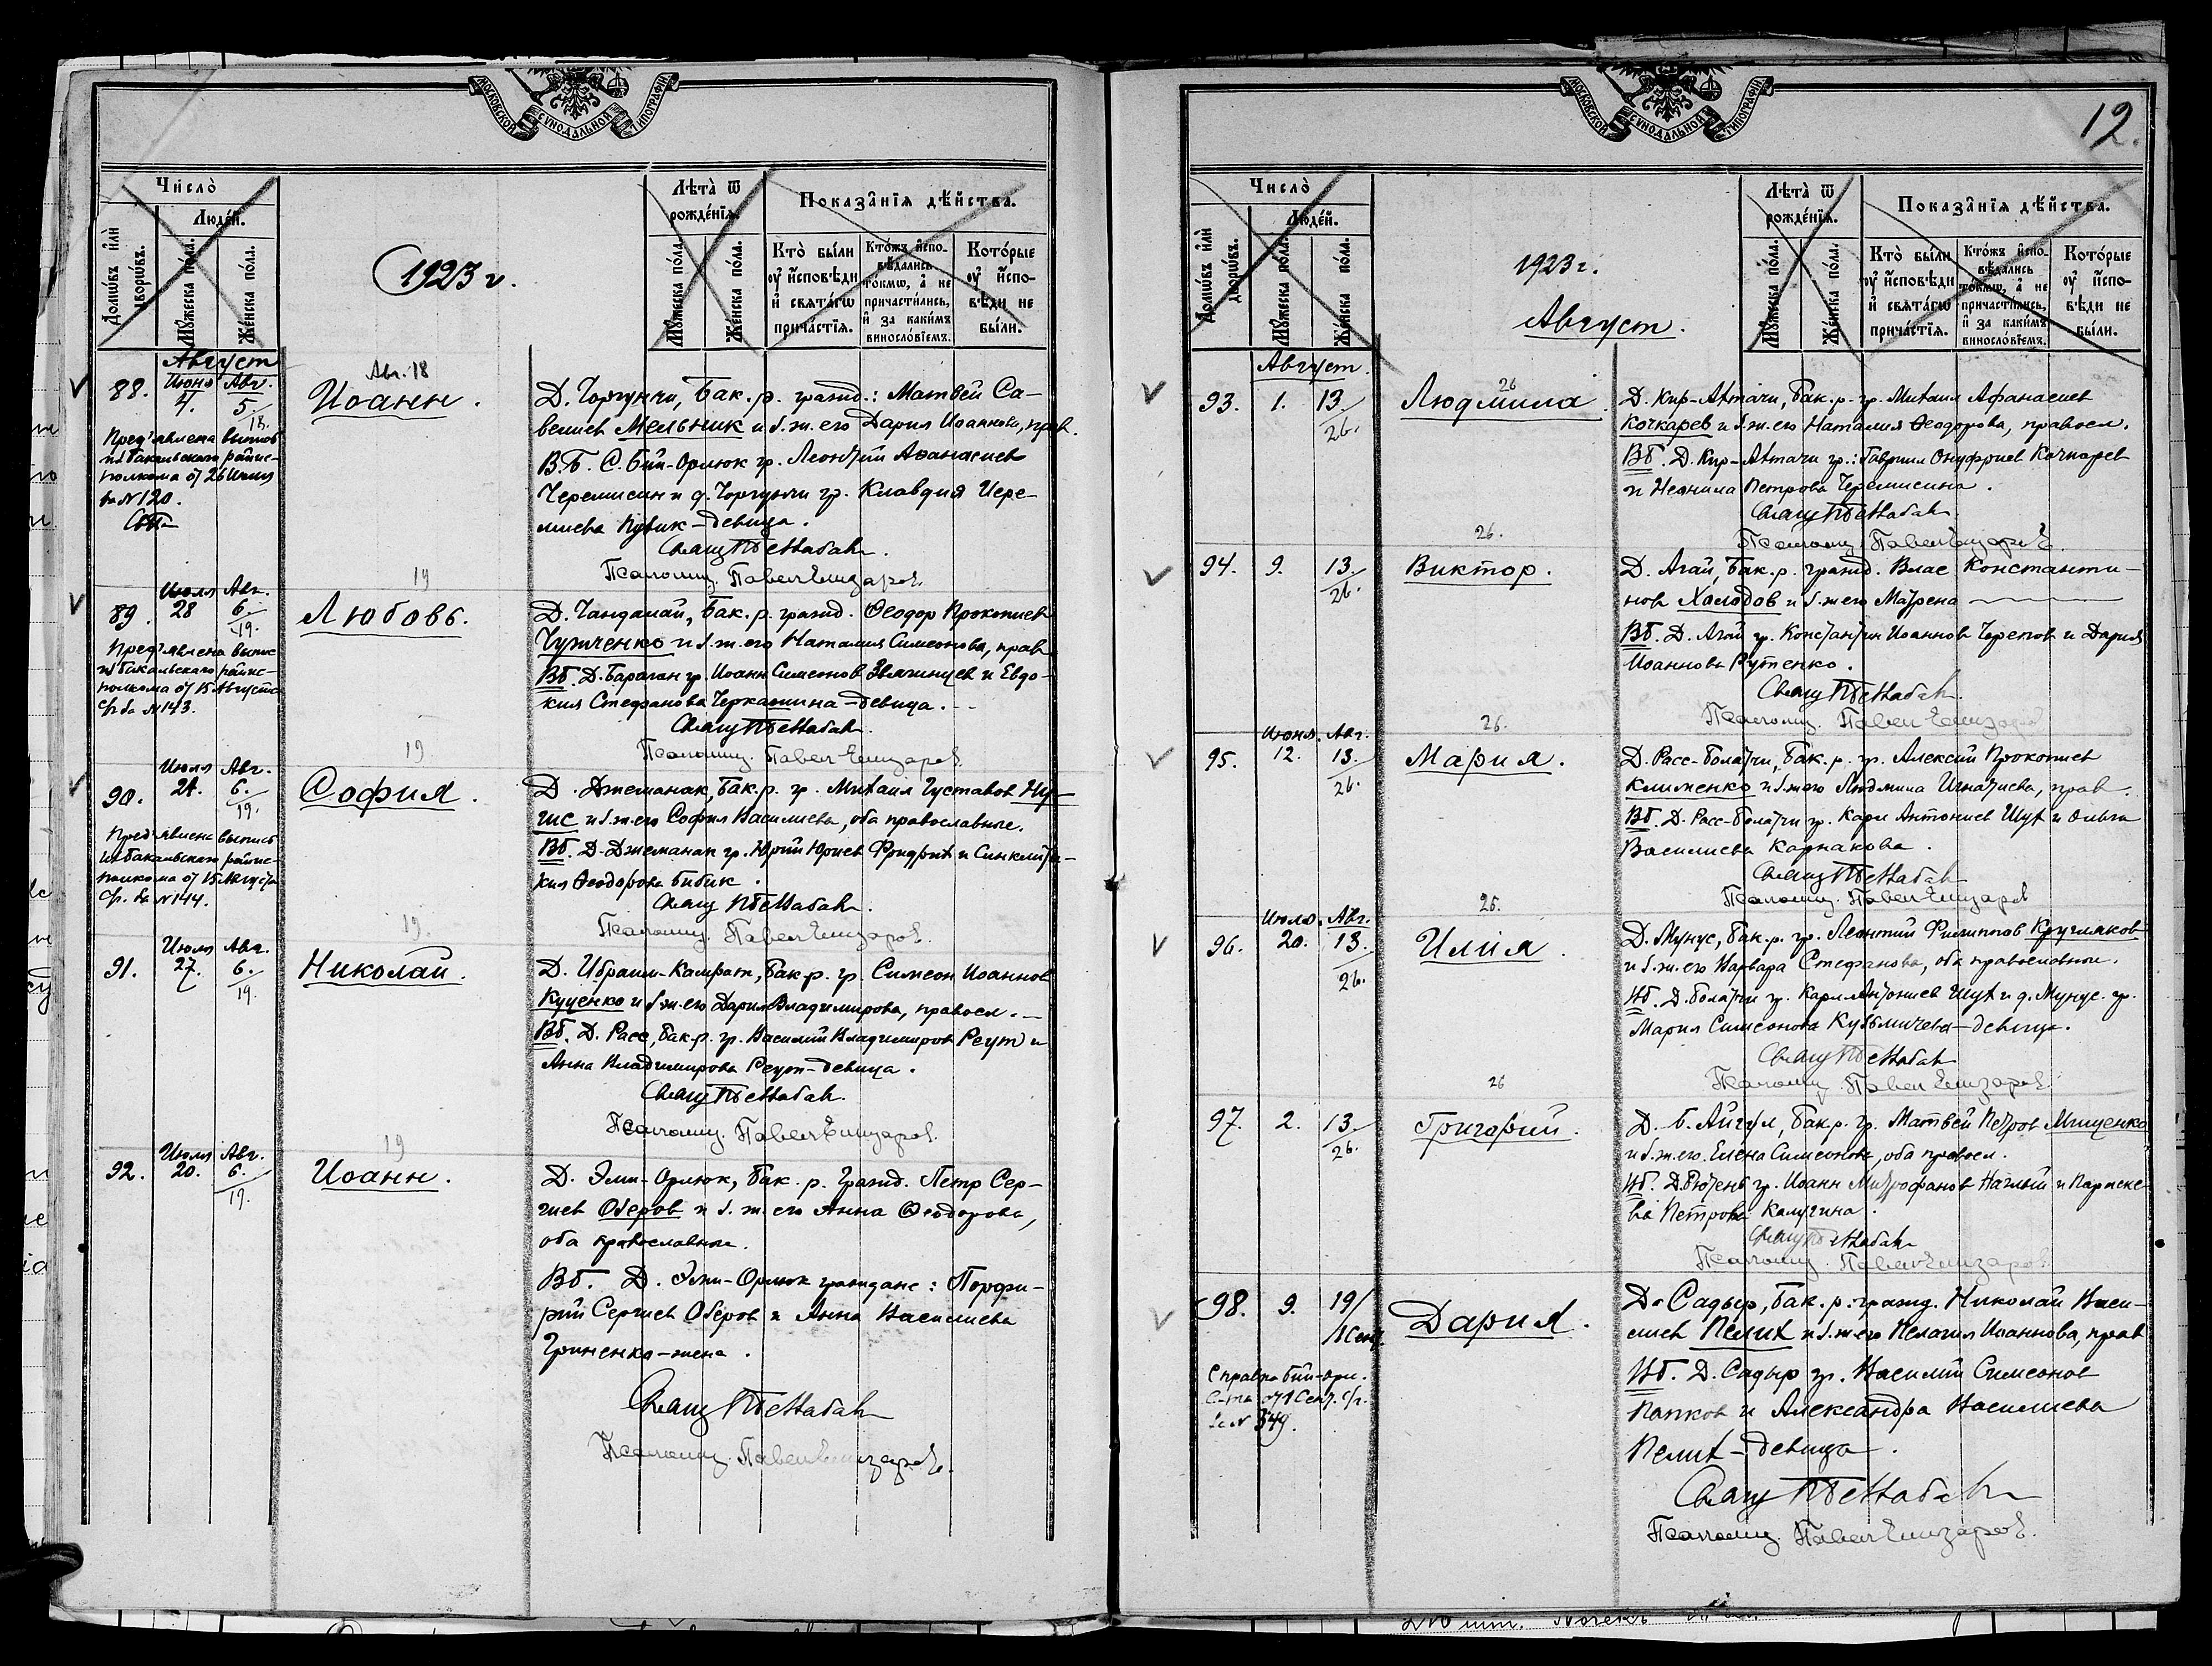 МОСКОВСКОЙ СѴНОДАЛЬНОЙ ТИПОГРАФІИ
Число̀
Людей.
Домѡвъ и҆лѝ дворѡвъ.
Мꙋ́жеска по́ла.
Же́нска по́ла.
1923 г.
Лѣта̀ ѿ рожде́нїѧ.
Мꙋ́жеска по́ла.
Же́нска по́ла.
Показа̑нїѧ дѣ́йства.
Кто̀ бы́ли ᲂу҆ и҆сповѣди и҆ свѧта́гѡ прича́стїѧ.
Кто́жъ и҆спо-вѣдались то́кмѡ, а҆ не причасти́лись, и҆ за каки́мъ винослові́емъ.
Кото́рые ᲂу҆ и҆спо-вѣди не бы́ли.
Август
88.
Июня 4.
Авг. 5/18.
Авг. 18
Иоанн.
Д. Чоргунчи, Бак. р. гражд.: Матвей Са-
велиев Мельник и з. ж. его Дария Иоаннова, прав.
В.Б. С. Бий-Орлюк гр. Леонтий Афанасиев
Черемисин и д. Чоргунчи гр. Клавдия Иере-
миева Пувик - девица.
Псаломщ. Павел Елизаров.
Пред'явлена выпись
из Бакальского райис-
полкома от 26 Июня
за N 120.
89.
Июля 28
Авг. 6./19.
19
Любовь.
Д. Чандалай, Бак. р. гражд. Ѳеодор Прокопиев
Чужченко и з. ж. его Наталия Симеонова, прав
ВБ. Д. Бараган гр. Иоанн Симеонов Звягинцев и Евдо-
кия Стефанова Черкашина - девица.
Псаломщ. Павел Елизаров.
Пред'явлена выпис
из Бакальского райис-
полкома от 15 Августа
с/г за N 143.
90.
Июля 24.
Авг. 6./19.
19
София.
Д. Джеманак, Бак. р. гр. Михаил Густавов
и з. ж. его София Василиева, оба православные.
ВБ. Д. Джеманак гр. Юрий Юриев Фридрих и Синклити-
кия Ѳеодорова Бибик.
Псаломщ. Павел Елизаров.
Пред'явлена выпись
из Бакальского райис-
полкома от 15 Августа
с/г. за N 144.
91.
Июля 27.
Авг. 6./19.
19.
Николай.
Д. Ибраим-Камрат, Бак. р. гр. Симеон Иоаннов
Куценко и з. ж. его Дария Владимирова, правосл.
ВБ. Д. Расс, Бак. р. гр. Василий Владимиров Реут и
Анна Владимирова Реут - девица.
Псаломщ. Павел Елизаров.
92.
Июля 20.
Авг. 6./19.
19
Иоанн.
Д. Эли-Орлюк, Бак. р. гражд. Петр Сер-
гиев Озеров и з. ж. его Анна Ѳеодорова,
оба православные.
ВБ. Д. Эли-Орлюк граждане: Порфи-
рий Сергиев Озеров и Анна Василиева
Гриненко - жена.
Псаломщ. Павел Елизаров.
12.
МОСКОВСКОЙ СѴНОДАЛЬНОЙ ТИПОГРАФІИ
Число̀
Людей.
Домѡвъ и҆лѝ дворѡвъ.
Мꙋ́жеска по́ла.
Же́нска по́ла.
1923 г.
Август.
Лѣта̀ ѿ рожде́нїѧ.
Мꙋ́жеска по́ла.
Же́нска по́ла.
Показа̑нїѧ дѣ́йства.
Кто̀ бы́ли ᲂу҆ и҆сповѣди и҆ свѧта́гѡ прича́стїѧ.
Кто́жъ и҆спо-вѣдались то́кмѡ, а҆ не причасти́лись, и҆ за каки́мъ винослові́емъ.
Кото́рые ᲂу҆ и҆спо-вѣди не бы́ли.
Август.
93.
1.
13./26.
26
Людмила.
Д. Кир-Актачи, Бак. р. гр. Михаил Афанасиев
Кочкарев и з. ж. его Наталия Ѳеодорова, правосл.
ВБ. Д. Кир-Актачи гр.: Гавриил Онуфриев Кочкарев
и Неонила Петрова Черемисина.
Псаломщ. Павел Елизаров.
94.
9.
13./26.
26.
Виктор.
Д. Агай, Бак. р. гражд. Влас Константи-
нов Холодов и з. ж его Матрена
ВБ. Д. Агай гр. Константин Иоаннов Черепов и Дария
Иоаннова Рутенко.
Псаломщ. Павел Елизаров
95.
Июня. 12.
Авг. 13./26.
26.
Мария.
Д. Расс-Болатчи, Бак. р. гр. Алексий Прокопиев
Клименко и з. ж его Людмила Игнатиева, прав.
ВБ. Д. Расс-Болатчи гр. Карл Антониев Шух и Ольга
Василиева Карнакова.
Псаломщ. Павел Елизаров
96.
Июля. 20.
Авг. 13./26.
26.
Илия.
Д. Мунус, Бак. р. гр. Леонтий Филиппов Кругляков
и з. ж. его Варвара Стефанова, оба православные.
ВБ. Д. Болатчи гр. Карл Антониев Шух и д. Мунус гр.
Мария Симеонова Кузьмичева - девица.
Псаломщ. Павел Елизаров.
97.
2.
13./26.
26
Григорий.
Д. Б. Айгул, Бак. р. гр. Матвей Петров Мищенко
и з. ж. его. Елена Симеонова, оба правосл.
ВБ. гр. Иоанн Митрофанов и Параске-
ва Петрова Калугина.
Псаломщ. Павел Елизаров.
98.
9.
19/1 Сент.
Дария.
Д. Садыр, Бак. р. гражд. Николай Васи-
лиев Пелих и з. ж его Пелагия Иоаннова, прав
ВБ. Д. Садыр гр. Василий Симеонов
Папков и Александра Василиева
Пелих - девица.
Псаломщ. Павел Елизаров.
Справка Бий-Орл.
С-та от 1 Сент. с/г.
за N 349.